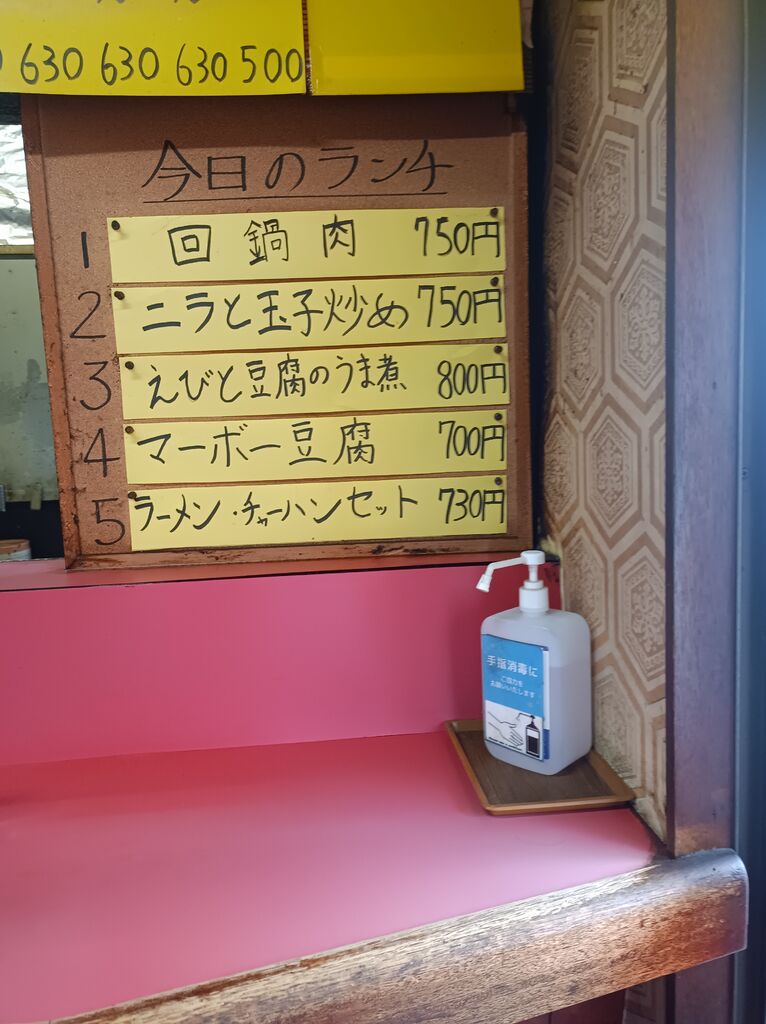 630 630 630 500
今日のランチ
1 回鍋肉 750円
2 ニラと玉子炒め 750円
3 えびと豆腐のうま煮 800円
4 マーボー豆腐 700円
5 ラーメン・チャーハンセット 730円
手指消毒に
ご協力を
お願いいたします